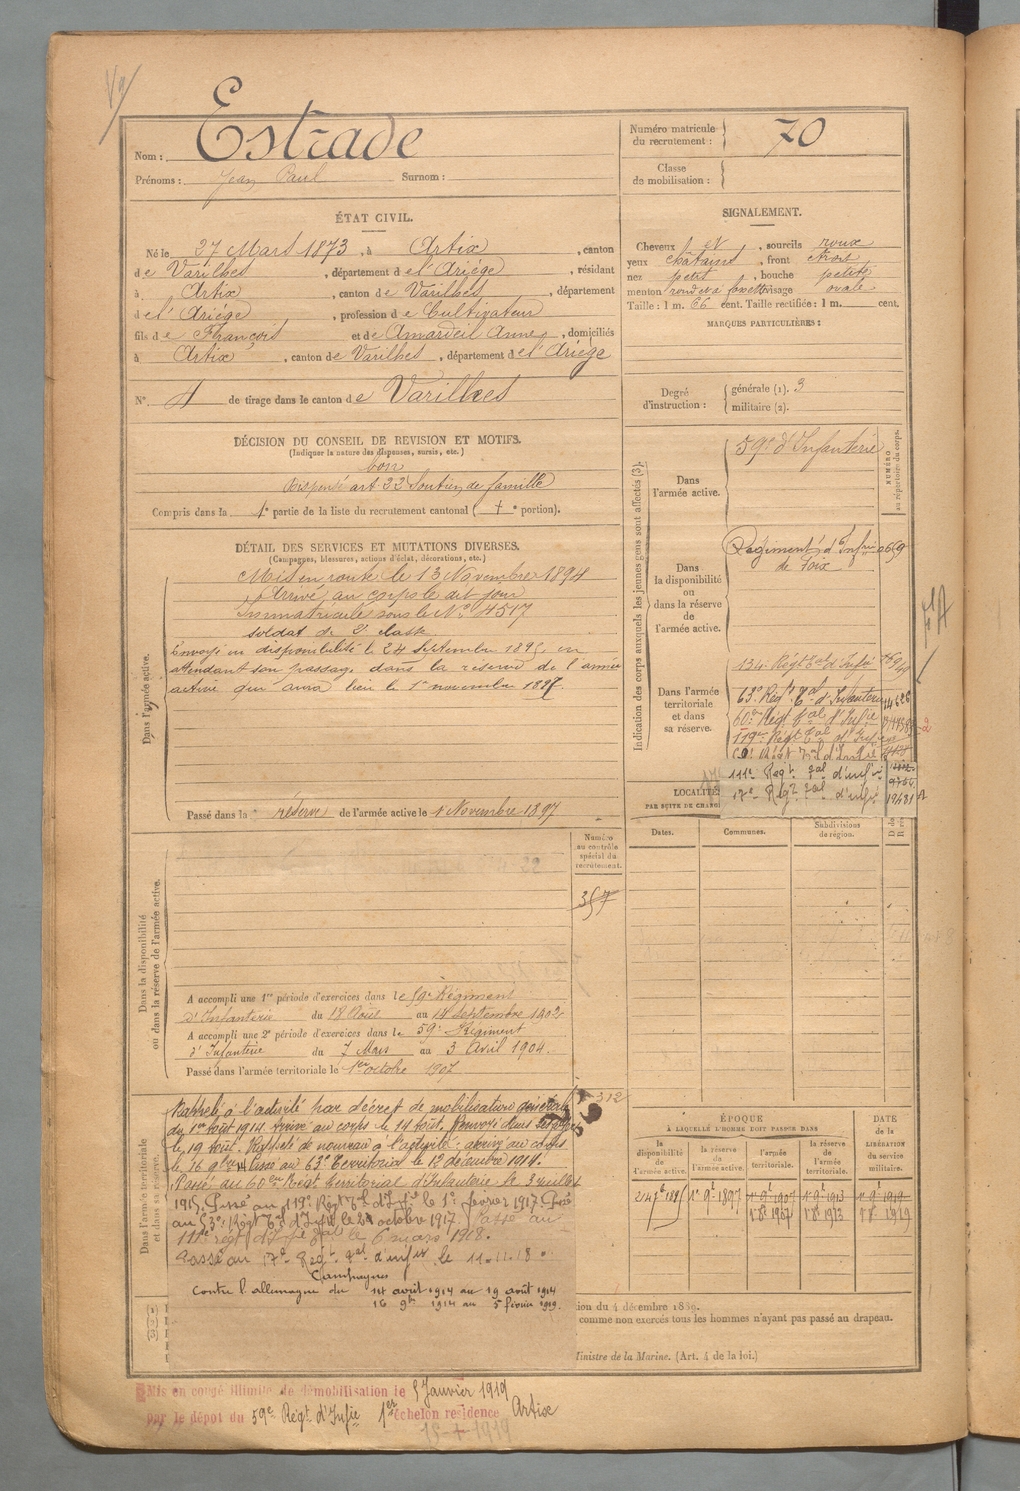 Nom : Estrade
Prénoms : Jean Paul Surnom :
Numéro matricule du recrutement : 70
Classe de mobilisation :
ÉTAT CIVIL.
Né le 27 Mars 1873, à Artix, canton
de Varilhes, département de l'Ariège, résidant
à Artix, canton de Varilhes, département
de l'Ariège, profession de Cultivateur
fils de François et de Amardeil Anne, domiciliés
à Artix, canton de Varilhes, département de l'Ariège
N° 4 de tirage dans le canton de Varilhes
SIGNALEMENT.
Cheveux , sourcils roux
yeux châtains, front étroit
nez petit, bouche petite
menton rond et à fossette visage ovale
Taille : 1 m. 66 cent. Taille rectifiée : 1 m. cent.
MARQUES PARTICULIÈRES :
Degré d'instruction : générale (1). 3
militaire (2).
DÉCISION DU CONSEIL DE REVISION ET MOTIFS.
(Indiquer la nature des dispenses, sursis, etc.)
bon
Dispensé art 22 Soutien de famille
Compris dans la 1e partie de la liste du recrutement cantonal ( e portion).
DÉTAIL DES SERVICES ET MUTATIONS DIVERSES.
(Campagnes, blessures, actions d'éclat, décorations, etc.)
Dans l'armée active.
Mis en route le 13 Novembre 1894
Arrivé au corps le dit jour
Immatriculé sous le N° 4517
soldat de 2e classe
Envoyé en disponibilité le 24 Septembre 1895, en
attendant son passage dans la réserve de l'armée
active qui aura lieu le 1er novembre 1897.
Passé dans la réserve de l'armée active le 1 Novembre 1897
Indication des corps auxquels les jeunes gens sont affectés (3).
NUMÉRO au répertoire du corps.
Dans l'armée active.
59e d'Infanterie
Dans la disponibilité ou dans la réserve de l'armée active.
Régiment d'Infie
de Foix
Dans l'armée territoriale et dans sa réserve.
134e Régt tal d'Infie
63e Régt tal d'Infanterie
60e Régt tal d'Infie
119e Régt tal d'Infie
111e Régt tal d'infie
17e Régt tal d'infie 19481
LOCALITÉS
PAR SUITE DE CHANG
Dates. Communes. Subdivisions de région.
Dans la disponibilité ou dans la réserve de l'armée active.
Numéro au contrôle spécial du recrutement.
357
A accompli une 1re période d'exercices dans le 59e Régiment
d'Infanterie du 18 Août au 14 septembre 1902
A accompli une 2e période d'exercices dans le 59e Régiment
d'Infanterie du 7 Mars au 3 Avril 1904.
Passé dans l'armée territoriale le 1er octobre 1907
Dans l'armée territoriale et dans sa réserve.
Rappelé à l'activité par décret de mobilisation générale
du 1er Août 1914 Arrivé au corps le 14 Août. Renvoyé dans ses foyers
le 19 Août. Rappelé de nouveau à l'activité : arrivé au corps
le 16 9bre 14 Passé au 63e Territorial le 12 décembre 1914.
Passé au 60e Régt Territorial d'Infanterie le 3 juillet
1915. Passé au 119e Régt tal d'Infie le 1er février 1917. Passé
au 53e Régt tal d'Infie le octobre 1917. Passé au
111e régt d'Infie tal le 6 mars 1918.
Passé au 17e Régt tal d'infie le 11-11-18.
Campagnes
Contre l'allemagne du 14 avril 1914 au 19 août 1914
16 9bre 1914 au 5 février 1919.
ÉPOQUE
A LAQUELLE L'HOMME DOIT PASSER DANS
la disponibilité de l'armée active.
la réserve de l'armée active.
l'armée territoriale.
la réserve de l'armée territoriale.
DATE de la LIBÉRATION du service militaire.
24 7bre 1895 1er 9bre 1897 1er 9bre 1907 1er 9bre 1913 1er 9bre 1919
1er 8bre 1907 1er 8bre 1913 1er 8bre 1919
ion du 4 décembre 1889.
comme non exercés tous les hommes n'ayant pas passé au drapeau.
Ministre de la Marine. (Art. 4 de la loi.)
Mis en congé illimité de démobilisation le 5 Janvier 1919
par le dépôt du 59e Régt d'Infie 1er échelon residence Artix